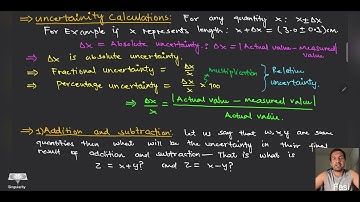 ⇒ Uncertainity Calculations: For any quantity x: x±Δx
For Example if x represents length: x+Δx = (3.0±0.1)cm.
Δx = Absolute uncertainity: Δx = |Actual value - measured value|
⇒ Δx is absolute uncertainity.
⇒ Fractional uncertainty = Δx/x
multiplication
Relative uncertainity.
⇒ Percentage uncertainty = Δx/x × 100
⇒ Δx/x = |Actual value - measured value| / Actual value.
⇒ 1) Addition and subtraction: let us say that w,x,y are some
quantities then what will be the uncertainty in their final
result of addition and subtraction — That is what is
Z = x+y? and Z = x-y?
Singularity